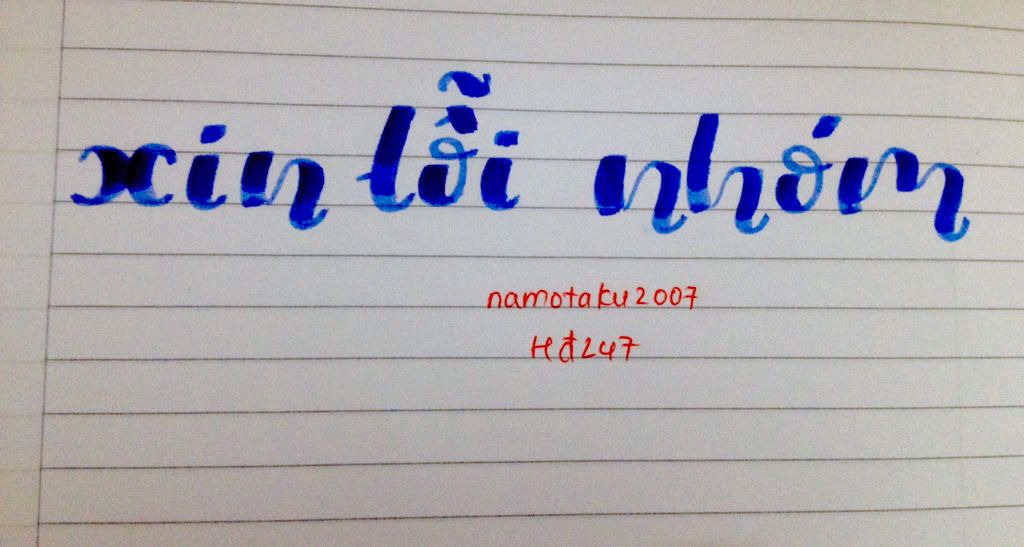 xin lỗi nhóm
namotaku2007
Hđ247